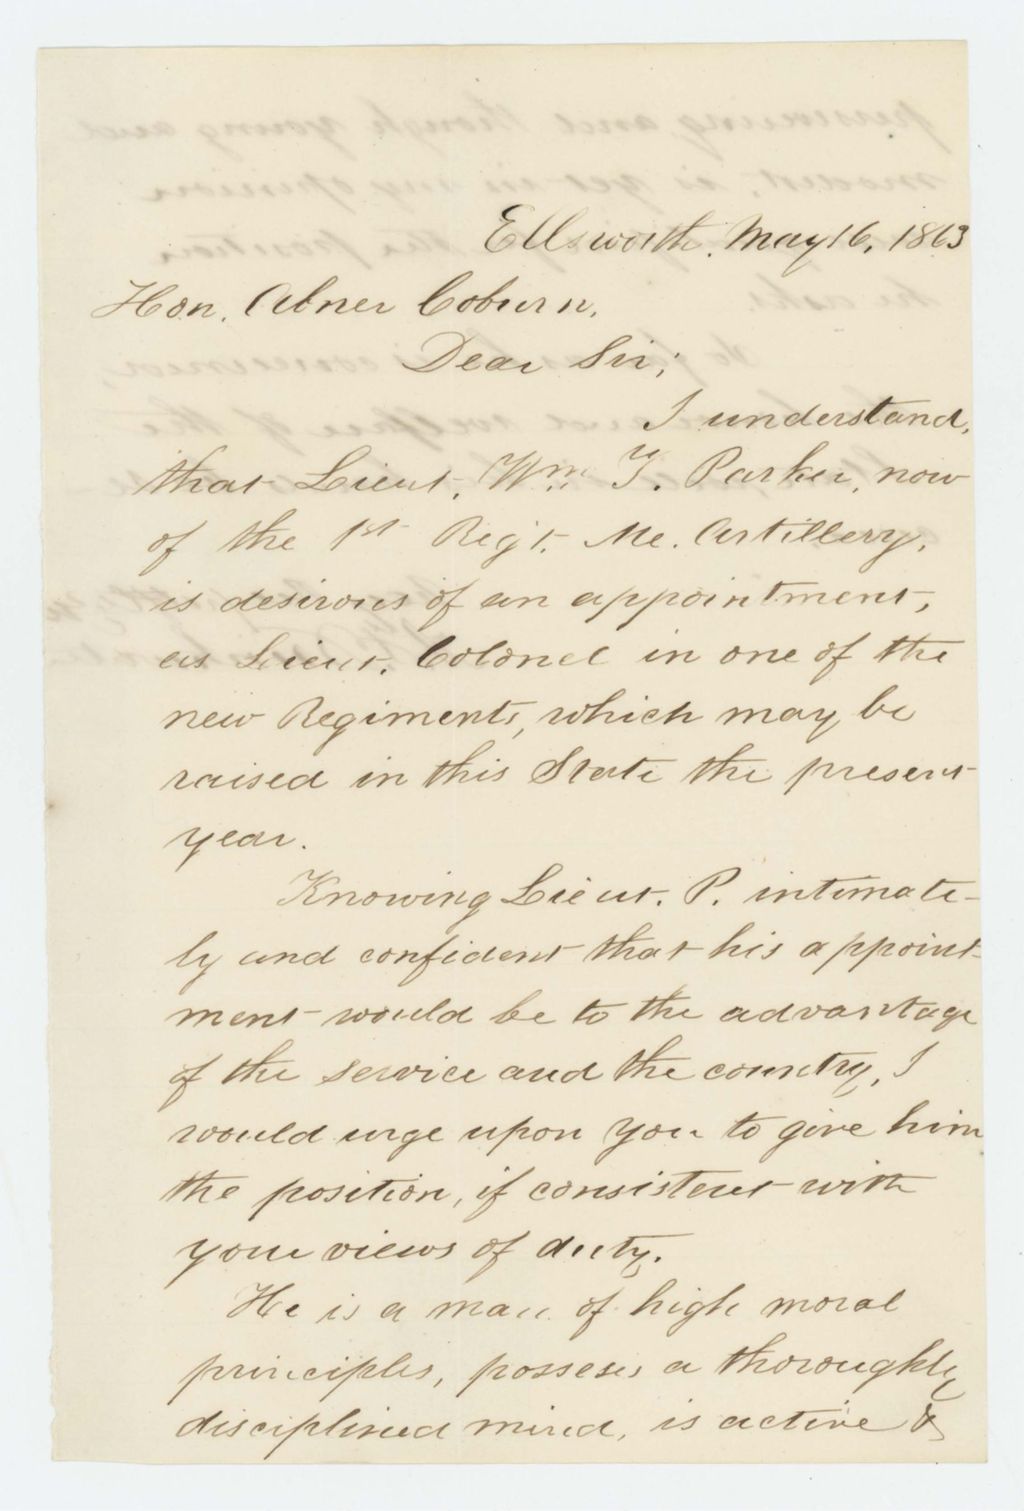 Ellsworth, May 16, 1863
Hon. Abner Coburn,
Dear Sir;
I understand,
that Lieut. Wm. T. Parker, now
of the 1st Reg't. Me. Artillery,
is desirous of an appointment,
as Lieut. Colonel in one of the
new Regiments, which may be
raised in this State the present
year.
Knowing Lieut. P. intimate-
ly and confident that his appoint-
ment would be to the advantage
of the service and the country, I
would urge upon you to give him
the position, if consistent with
your views of duty.
He is a man of high moral
principles, posseses a thoroughly
disciplined mind, is active &